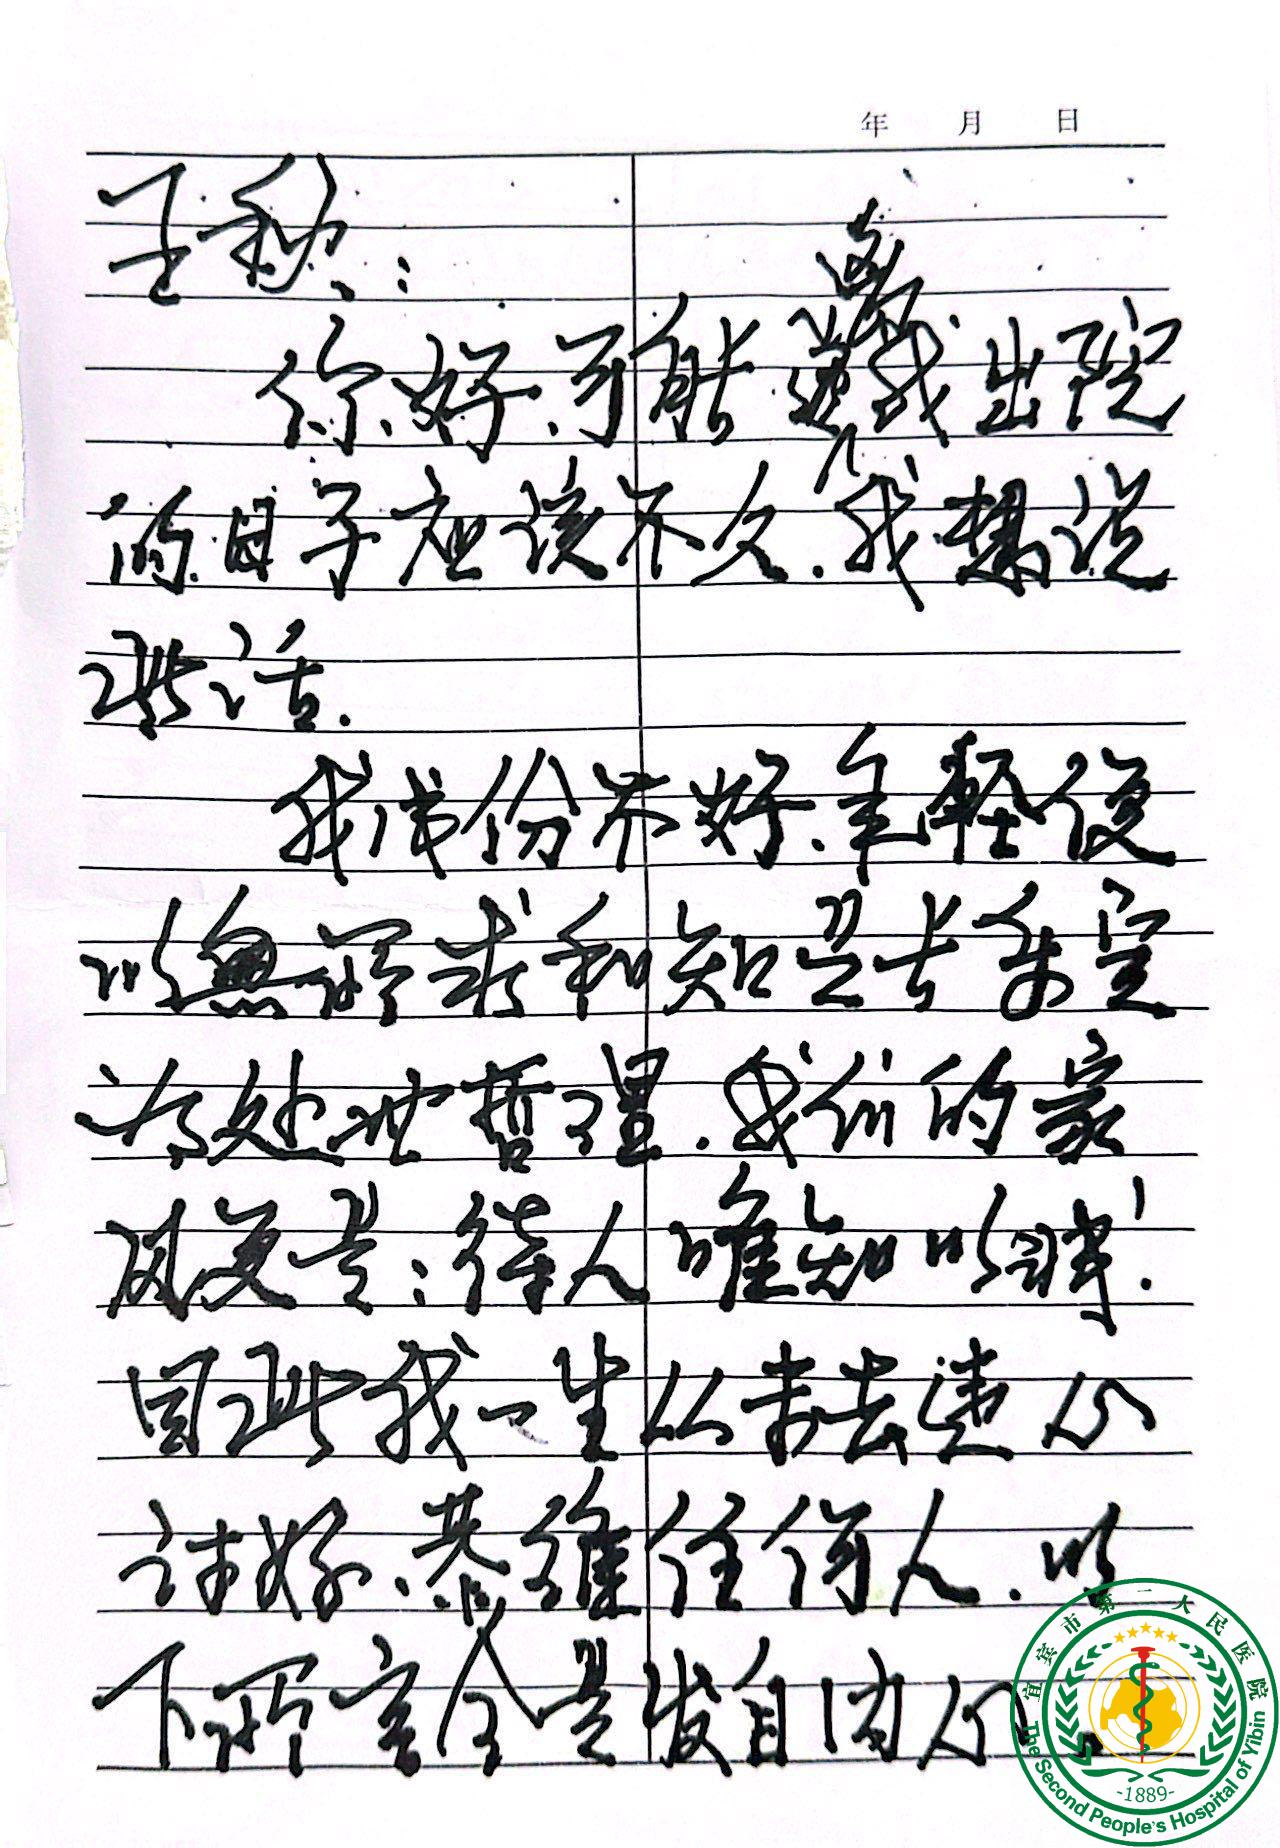 年 月 日
王秋:
你好、可能离我出院
的日子应该不久.我想说
些话.
我成份不好、年轻便
以無所求和知足长乐定
为处世哲理.我们的家
风更是:待人唯知以诚!
因此我一生从未去违心
讨好、恭维任何人.以
下所言全是发自内心.
宜宾市第二人民医院
The Second People's Hospital of Yibin
-1889-